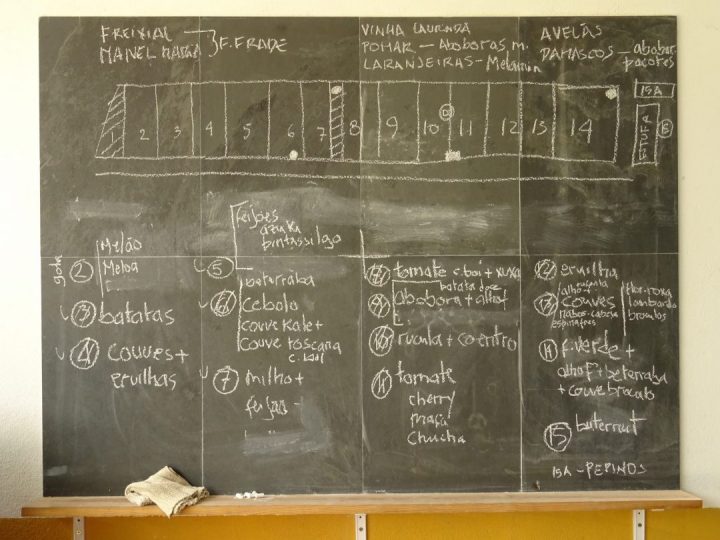 FREIXIAL
MANEL
F. FRADE
VINHA
POMAR — Aboboras m.
LARANJEIRAS — Melancin
AVELÃS
DAMASCOS — abobor.
pacotes
1 2 3 4 5 6 7 8 9 10 11 12 13 14
15A
gota
2 Melão
Meloa
3 batatas
4 couves +
ervilhas
feijões
azuka
pintassilgo
5
beterraba
6 Cebola
couve Kale +
couve toscana
7 milho +
feijão
8 tomate c. boi + xuxa
batata doce
9 abobora + alho f
10 rucula + coentro
11 tomate
cherry
maçã
chucha
12 ervilha
13 couves
espinafres
flor. roxa
lombardo
brocolos
14 f. verde +
alho f + beterraba
+ couve brocolo
15 buternut
15A - PEPINOS